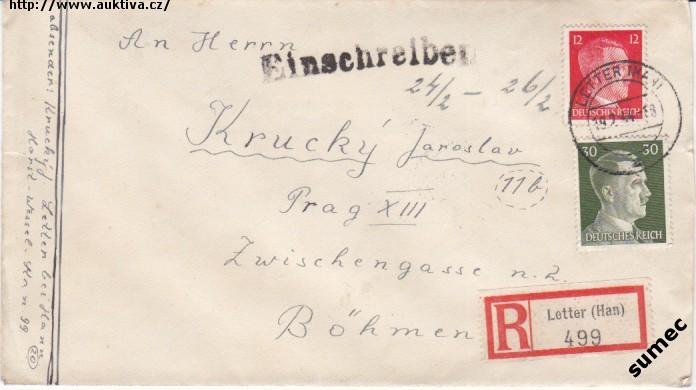 http://www.auktiva.cz/
An Herrn
Einschreiben
24/2 - 26/2
Krucký Jaroslav
11b
Prag XIII
Zwischengasse n. 2.
Böhmen
absender: Krucký J. Letter bei Hann
Horst-Wessel-
99
20
12 12
DEUTSCHES REICH
LETTER (HAN)
30 30
DEUTSCHES REICH
R
Letter (Han)
499
sumec